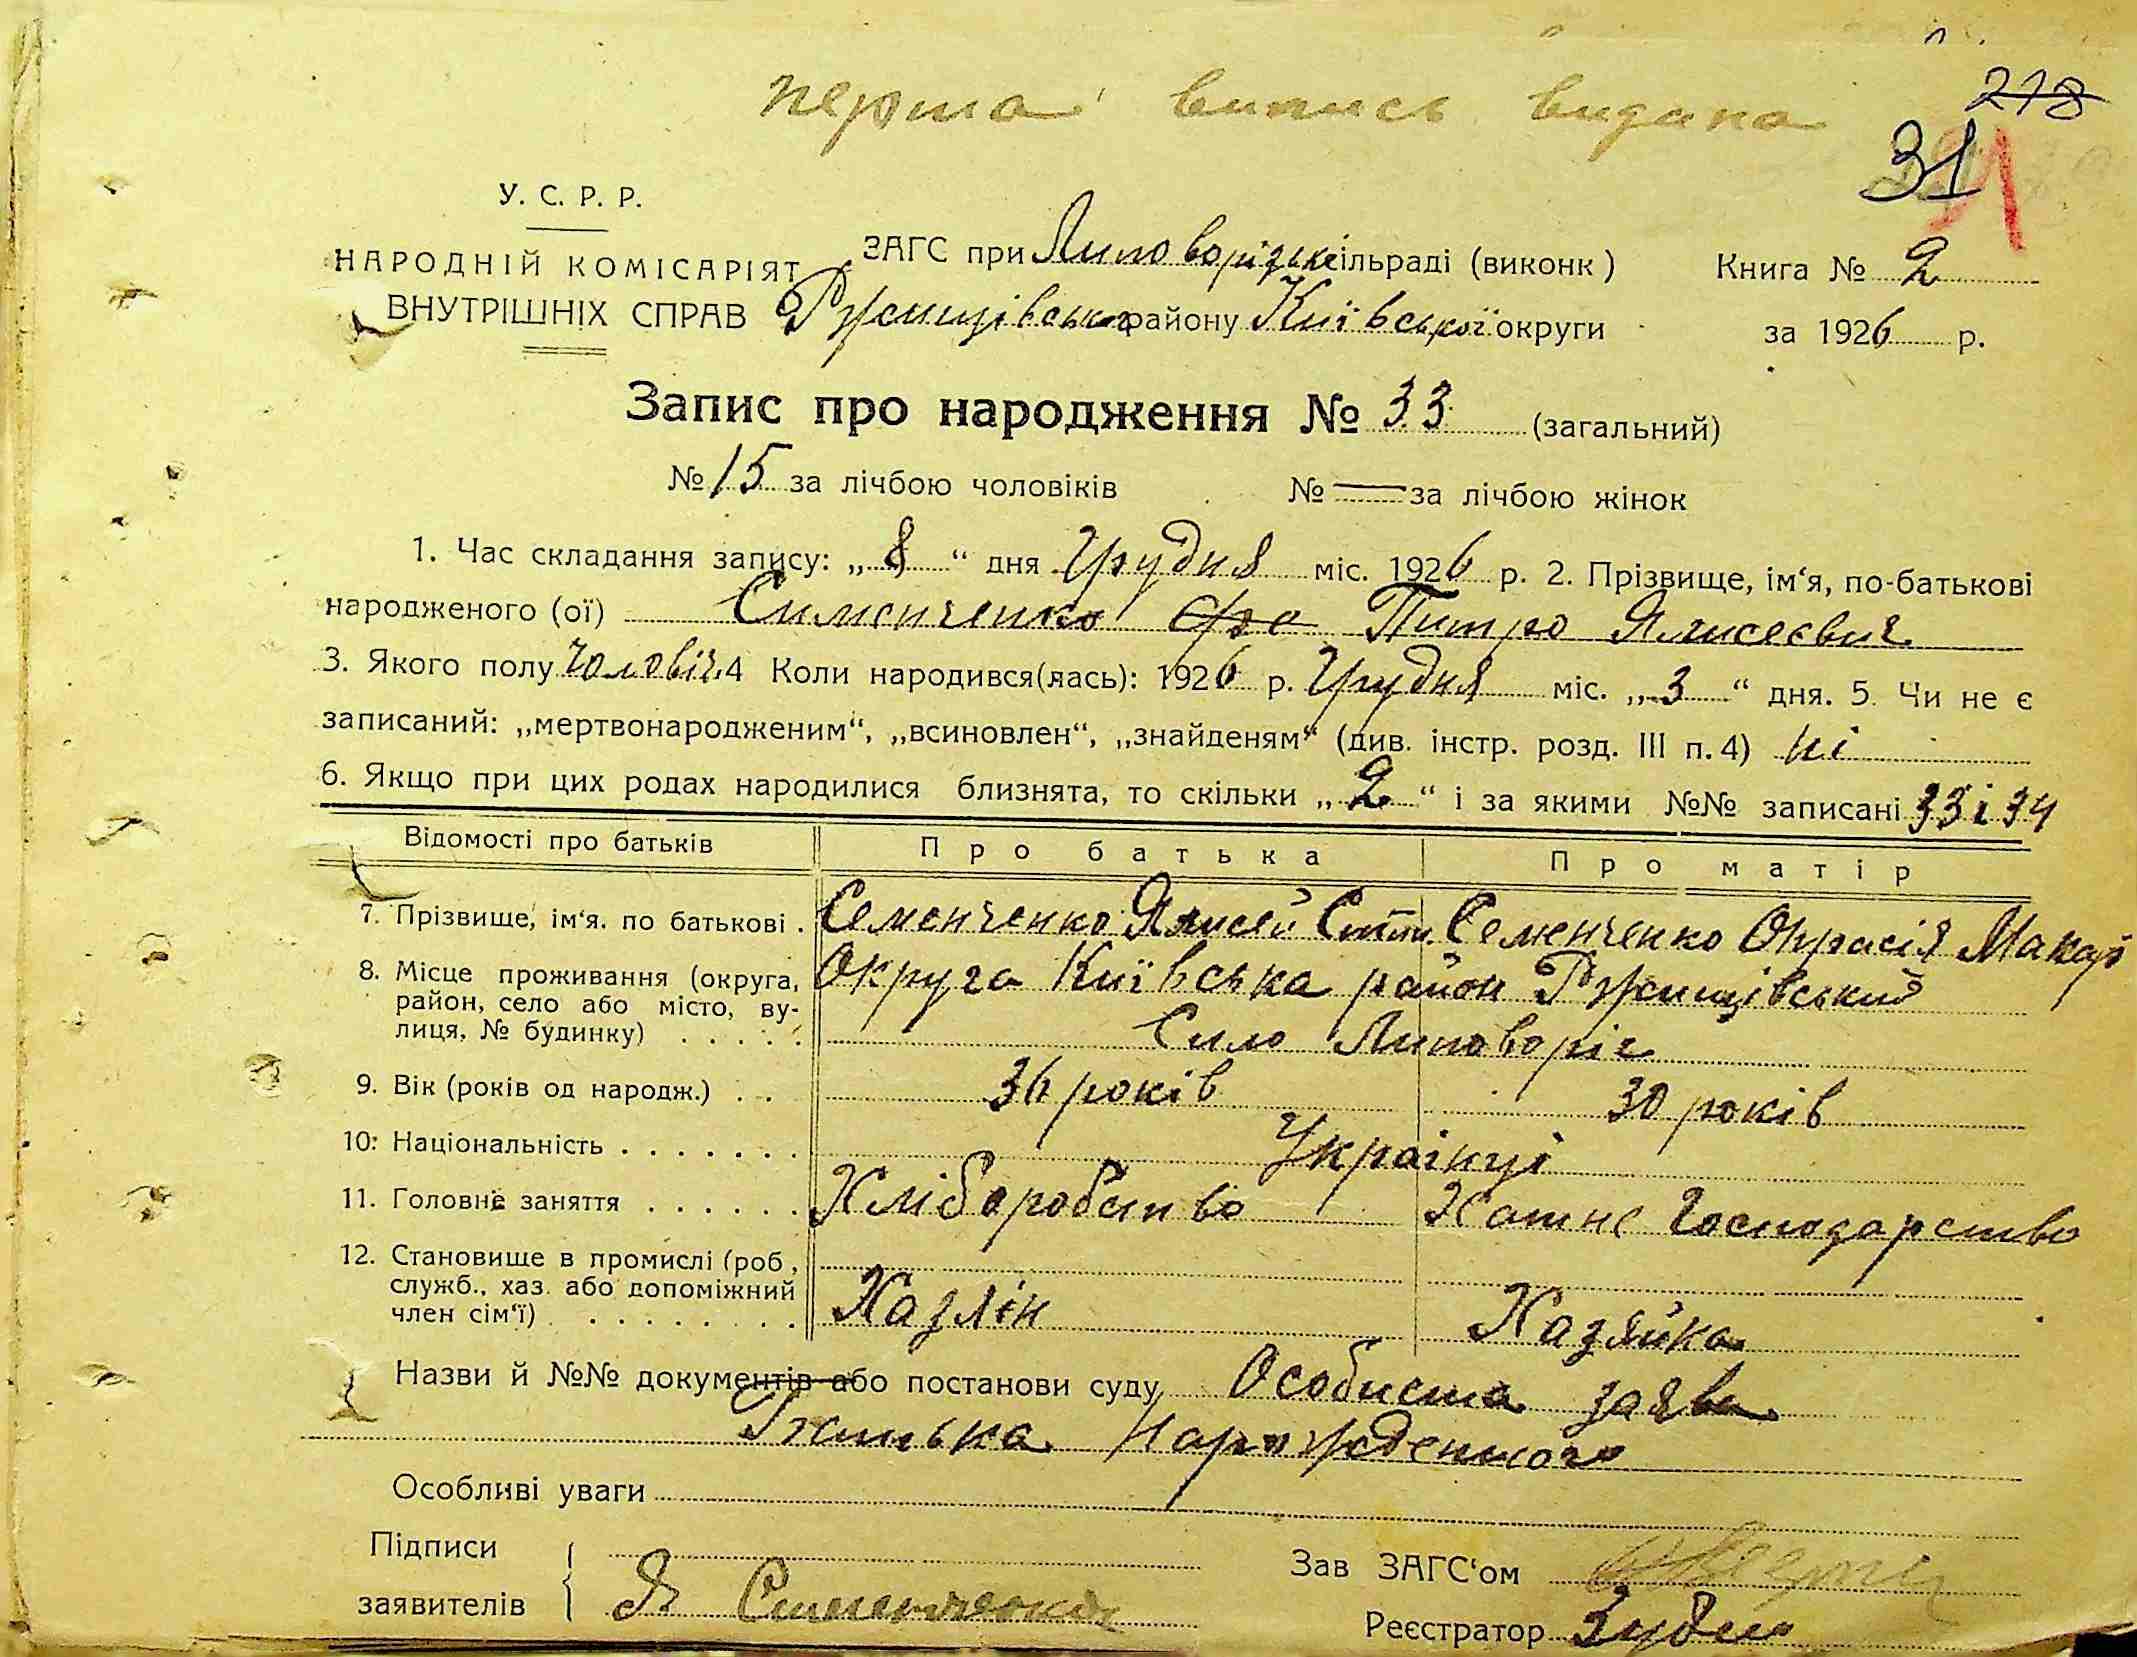 278
перша випись видана
31
У. С. Р. Р.
НАРОДНІЙ КОМІСАРІЯТ
ВНУТРІШНІХ СПРАВ
ЗАГС при Липоворізькі сільраді (виконк)
Ржищівського району Київської округи
Книга № 2
за 1926 р.
Запис про народження № 33 (загальний)
№ 15 за лічбою чоловіків № — за лічбою жінок
1. Час складання запису: „8“ дня Грудня міс. 1926 р. 2. Прізвище, ім‘я, по-батькові
народженого (ої) Сименченко Питро Ялисеєвич
3. Якого полу Чоловіч. 4 Коли народився(лась): 1926 р. Грудня міс. „3“ дня. 5. Чи не є
записаний: „мертвонародженим“, „всиновлен“, „знайденям“ (див. інстр. розд. III п. 4) ні
6. Якщо при цих родах народилися близнята, то скільки „2“ і за якими №№ записані 33 і 34
Відомості про батьків Про батька Про матір
7. Прізвище, ім‘я. по батькові . Семенченко Ялисей Семенченко Опрасія Макар
8. Місце проживання (округа, Округа Київська район Ржищівський
район, село або місто, ву-
лиця, № будинку) . . . . . Сило Липоворіг
9. Вік (років од народж.) . . 36 років 30 років
10: Національність . . . . . . . Українці
11. Головне заняття . . . . . . Хліборобство Хатне Господарство
12. Становище в промислі (роб,
служб., хаз. або допоміжний
член сім‘ї) . . . . . . . . Хазяїн Хазяйка
Назви й №№ документів або постанови суду Особиста заява
Батька Нарожденного
Особливі уваги
Підписи
заявителів Я Сименченко
Зав ЗАГС‘ом
Реєстратор